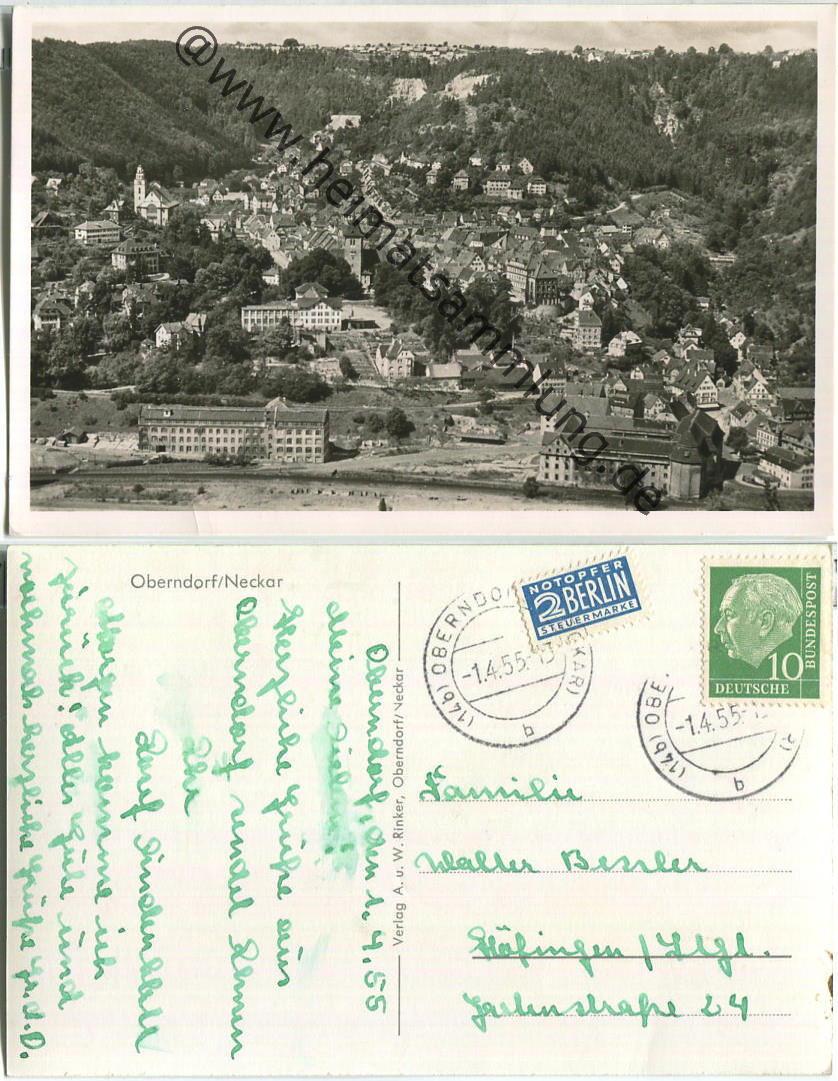 @www.heimatsammlung.de
Oberndorf/Neckar
Oberndorf, den 1.4.55
Meine Lieben!
Herzliche Grüße aus
Oberndorf sendet Ihnen
Ihr
Josef Lindenblatt
Morgen komme ich
zurück! Alles Gute und
nochmals herzliche Grüße
Verlag A. u. W. Rinker, Oberndorf/Neckar
(14b) OBERNDORF
-1.4.55.-13
q
NOTOPFER
2 BERLIN
STEUERMARKE
(14b) OBE
-1.4.55.-
q
10
DEUTSCHE
BUNDESPOST
Familie
Walter Bessler
Höfingen /
24